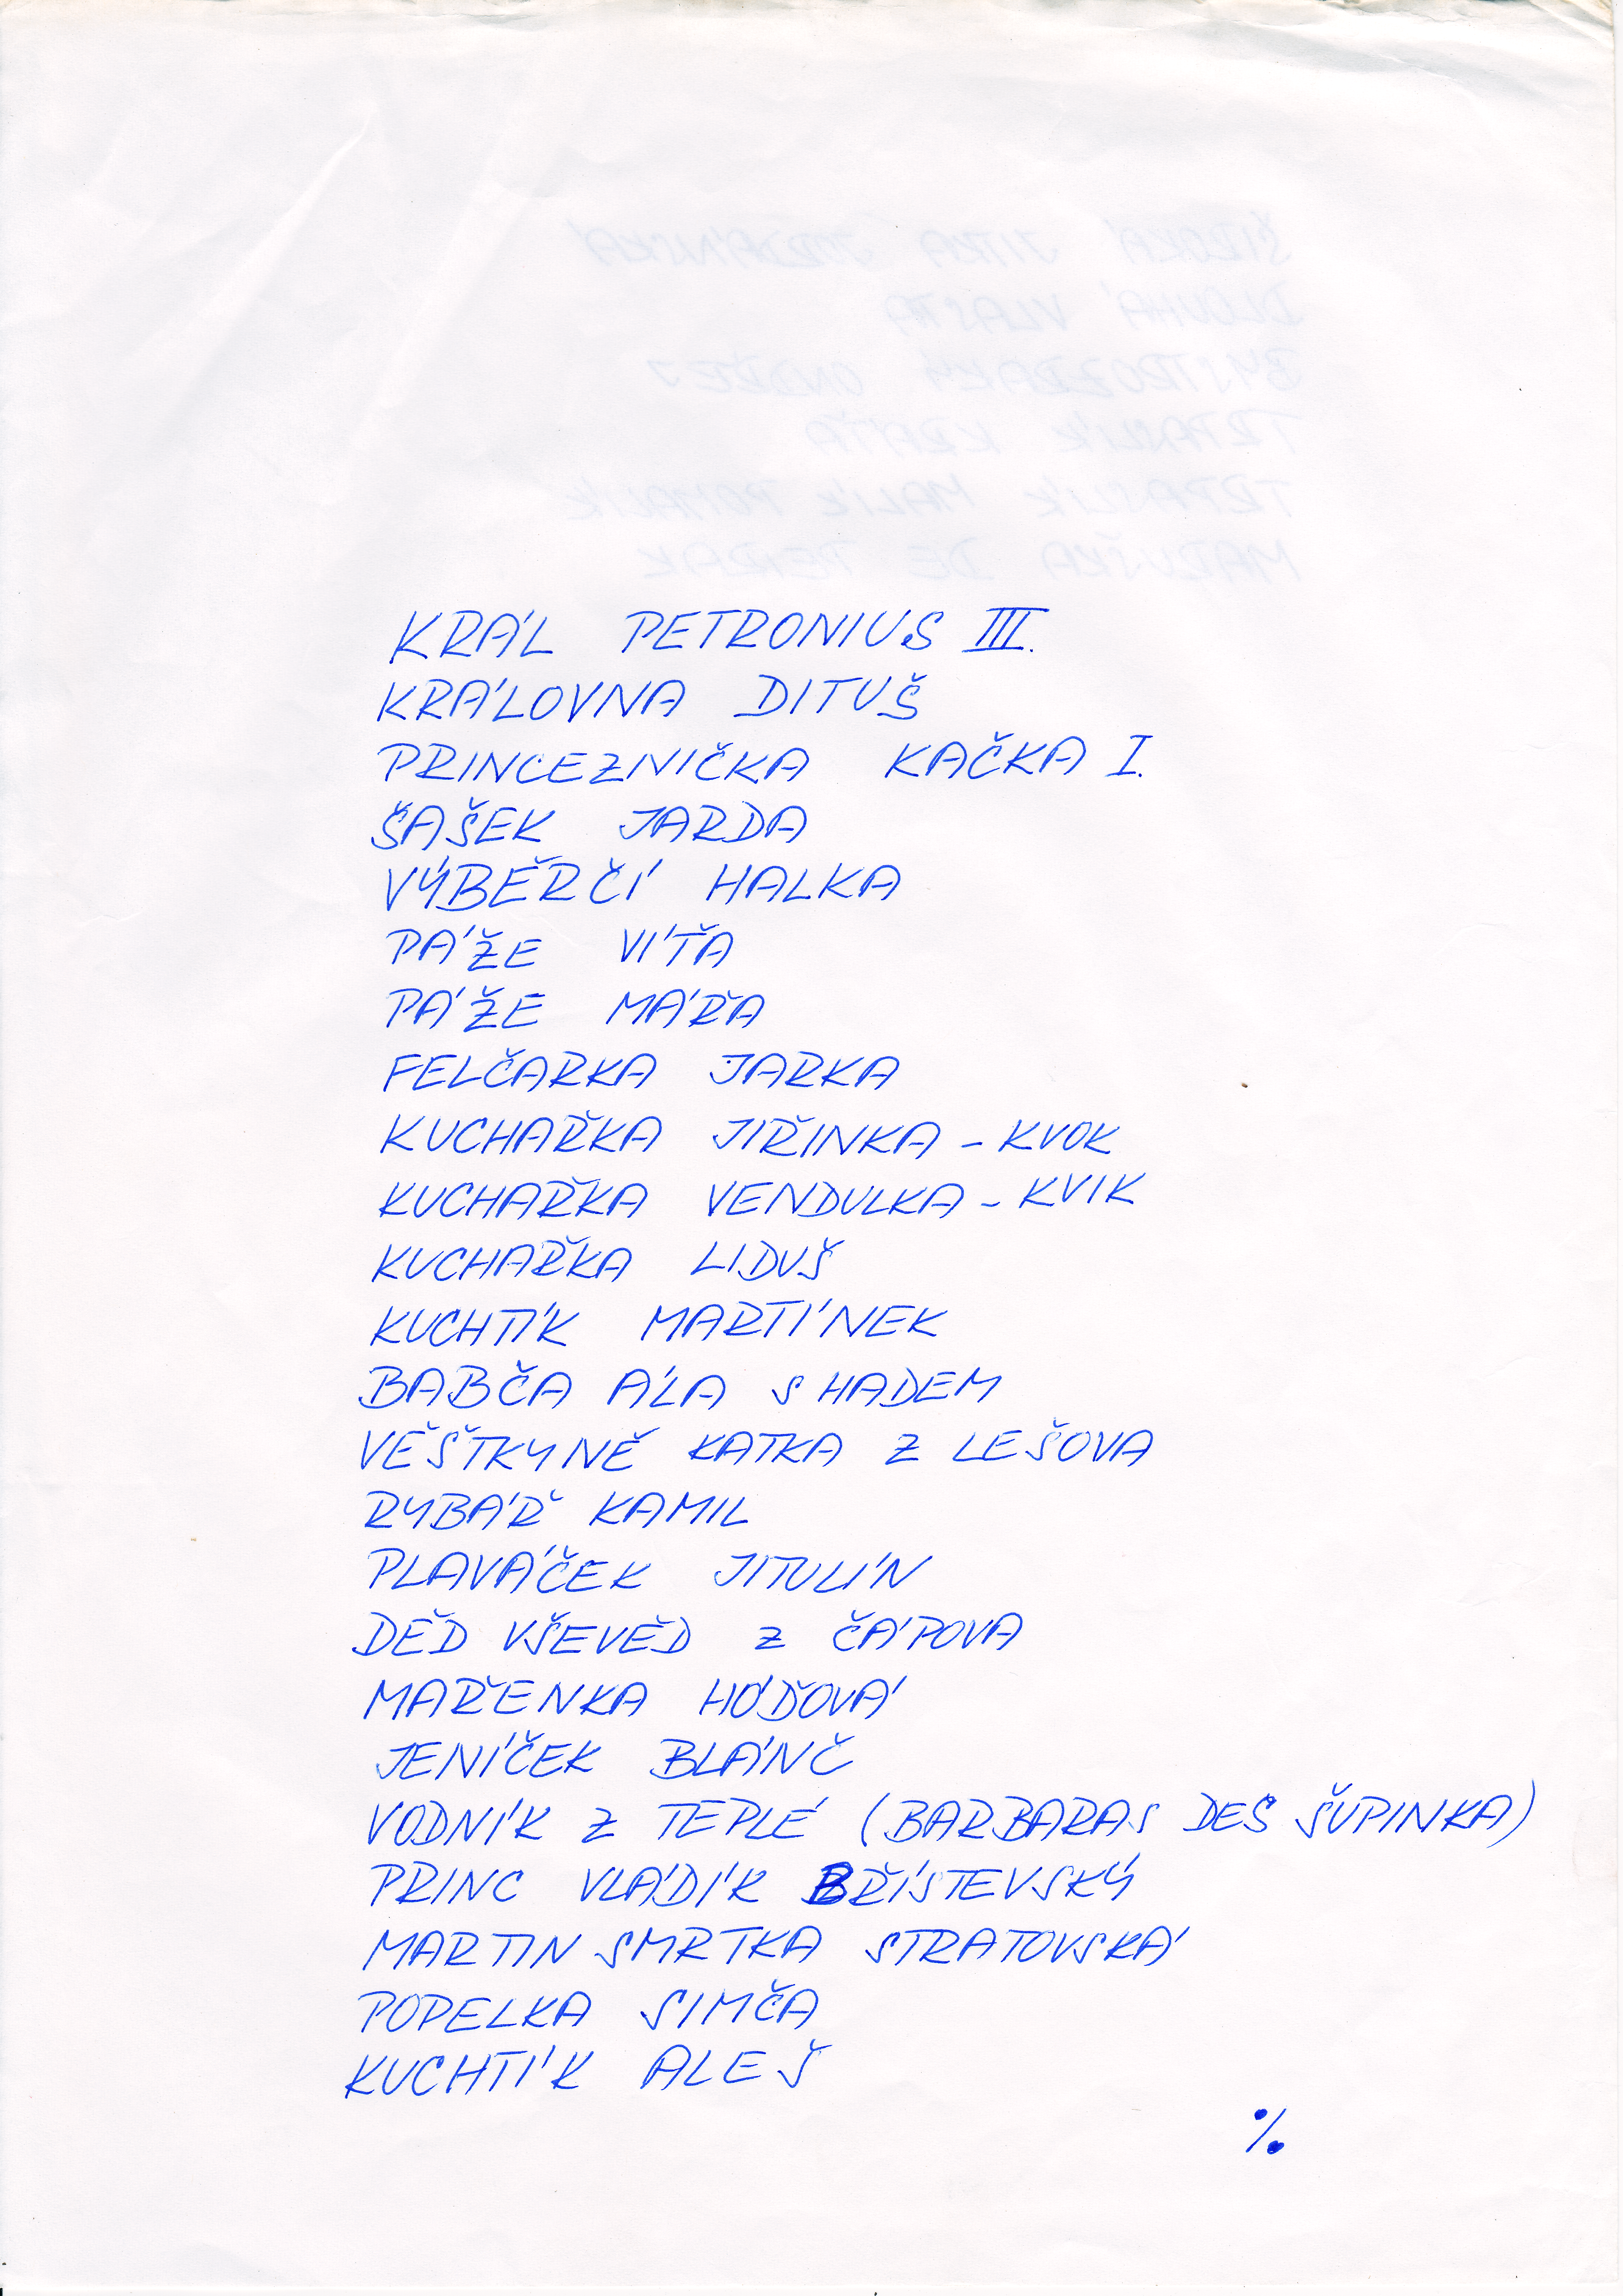 KRÁL PETRONIUS III.
KRÁLOVNA DITUŠ
PRINCEZNIČKA KAČKA I.
ŠAŠEK JARDA
VÝBĚRČÍ HALKA
PÁŽE VÍŤA
PÁŽE MÁŘA
FELČARKA JARKA
KUCHAŘKA JIŘINKA - KVOK
KUCHAŘKA VENDULKA - KVIK
KUCHAŘKA LIDUŠ
KUCHTÍK MARTÍNEK
BABČA ÁLA S HADEM
VĚŠTKYNĚ KATKA Z LEŠOVA
RYBÁŘ KAMIL
PLAVÁČEK JITULÍN
DĚD VŠEVĚD Z ČÁPOVA
MAŘENKA HÓĎOVÁ
JENÍČEK BLÁNČ
VODNÍK Z TEPLÉ (BARBARAS DEŠ ŠUPINKA)
PRINC VLÁDÍK BŘÍSTEVSKÝ
MARTIN SMRTKA STRATOVSKÁ
POPELKA SIMČA
KUCHTÍK ALEŠ
%